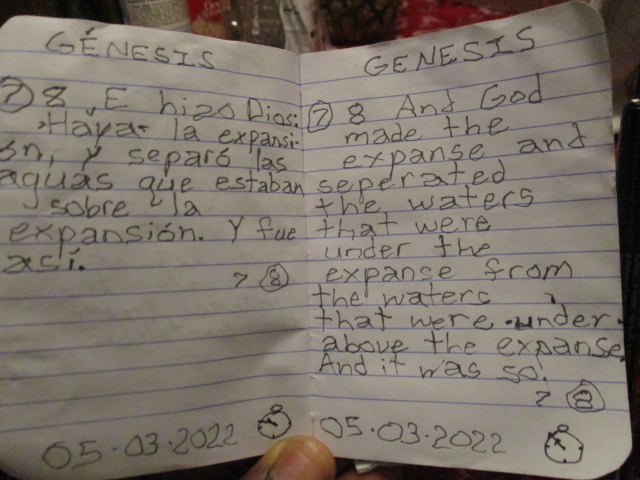 GÉNESIS
7 8 E hizo Dios:
Haya la expansi-
ón, y separó las
aguas que estaban
sobre la
expansión. Y fue
así.
> 8
05.03.2022
GENESIS
7 8 And God
made the
expanse and
seperated
the waters
that were
under the
expanse from
the waters
that were under
above the expanse.
And it was so.
> 8
05.03.2022